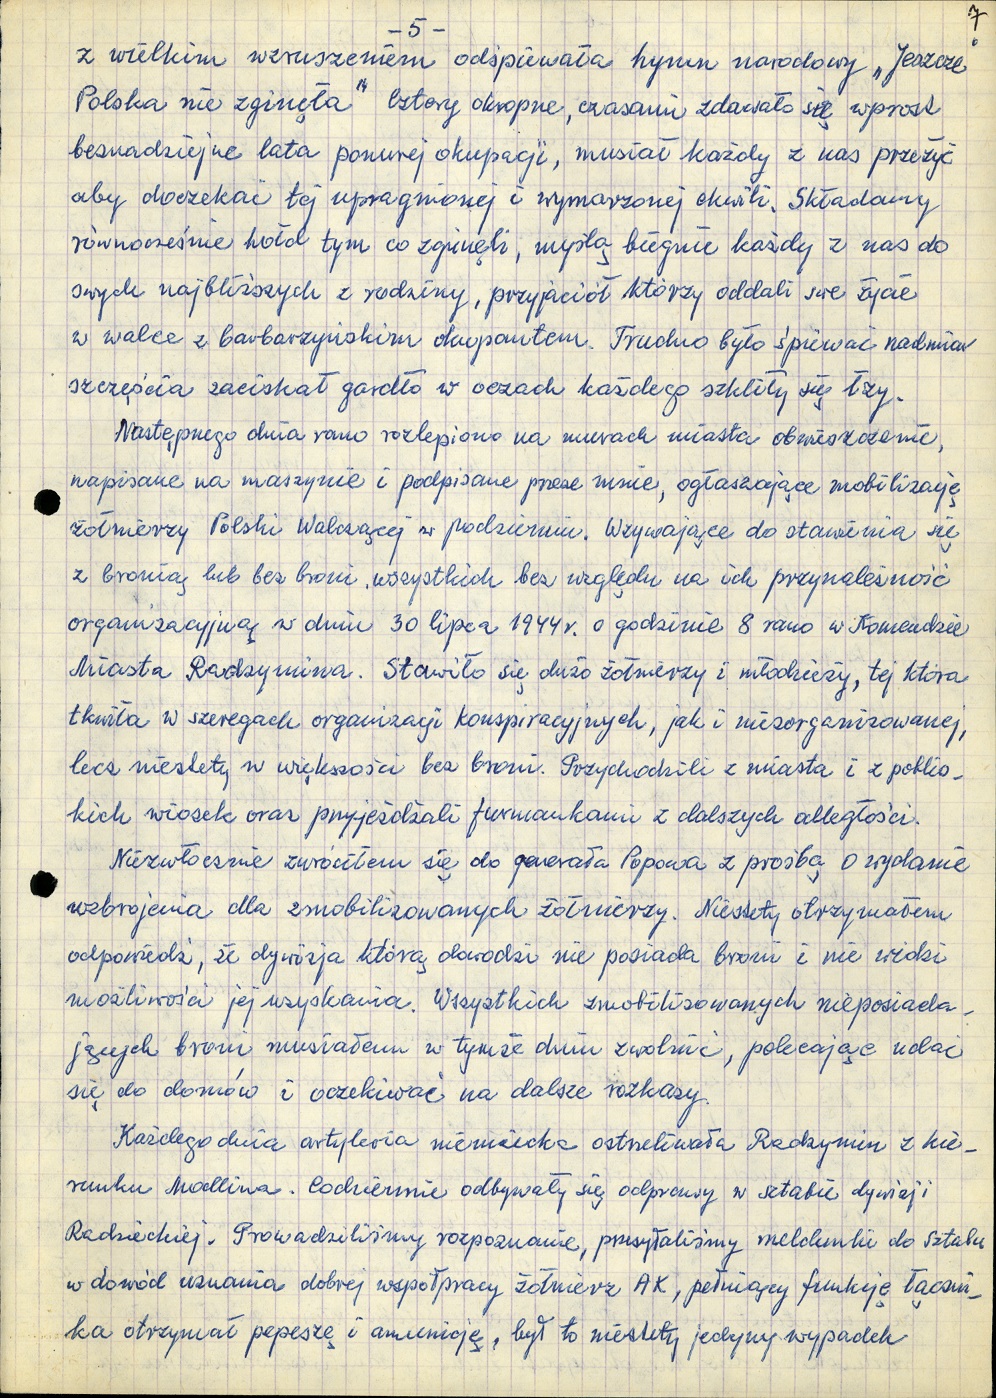 7
- 5 -
z wielkim wzruszeniem odśpiewała hymn narodowy „Jeszcze
Polska nie zginęła" Cztery okropne, czasami zdawało się wprost
beznadziejne lata ponurej okupacji, musiał każdy z nas przeżyć
aby doczekać tej upragnionej i wymarzonej chwili. Składamy
równocześnie hołd tym co zginęli, myślą biegnie każdy z nas do
swych najbliższych z rodziny, przyjaciół którzy oddali swe życie
w walce z barbarzyńskim okupantem. Trudno było śpiewać nadmiar
szczęścia zaciskał gardło w oczach każdego szkliły się łzy.
Następnego dnia rano rozlepiono na murach miasta obwieszczenie,
napisane na maszynie i podpisane przeze mnie, ogłaszające mobilizację
żołnierzy Polski Walczącej w podziemiu. Wzywające do stawienia się
z bronią lub bez broni, wszystkich bez względu na ich przynależność
organizacyjną w dniu 30 lipca 1944r. o godzinie 8 rano w Komendzie
Miasta Radzymina. Stawiło się dużo żołnierzy i młodzieży, tej która
tkwiła w szeregach organizacji konspiracyjnych, jak i niezorganizowanej,
lecz niestety w większości bez broni. Przychodzili z miasta i z poblis-
kich wiosek oraz przyjeżdżali furmankami z dalszych odległości.
Niezwłocznie zwróciłem się do generała Popowa z prośbą o wydanie
uzbrojenia dla zmobilizowanych żołnierzy. Niestety otrzymałem
odpowiedź, że dywizja którą dowodzi nie posiada broni i nie widzi
możliwości jej uzyskania. Wszystkich zmobilizowanych nieposiada-
jących broni musiałem w tymże dniu zwolnić, polecając udać
się do domów i oczekiwać na dalsze rozkazy.
Każdego dnia artyleria niemiecka ostreliwała Radzymin z kie-
runku Modlina. Codziennie odbywały się odprawy w sztabie dywizji
Radzieckiej. Prowadziliśmy rozpoznanie, przesyłaliśmy meldunki do Sztabu
w dowód uznania dobrej współpracy żołnierz AK, pełniący funkcję łączni-
ka otrzymał pepeszę i amunicję, był to niestety jedyny wypadek